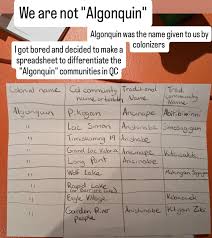 We are not "Algonquin"
Algonquin was the name given to us by
colonizers
I got bored and decided to make a
spreadsheet to differentiate the
"Algonquin" communities in QC
Colonial name Col community Traditional Trad
name Name Community
Name
Algonquin P. Kogan Anicinape Abitibiwinni
" Lac Simon Anishinabe
" Timiskaming 19 Anishinabe
" Grand Lac Victoria Anicinape
" Long Point Anicinabe
" Wolf Lake
" Rapid Lake
" Eagle Village Kebaowek
" Garden River Anishinabe Kitigan Zibi
people